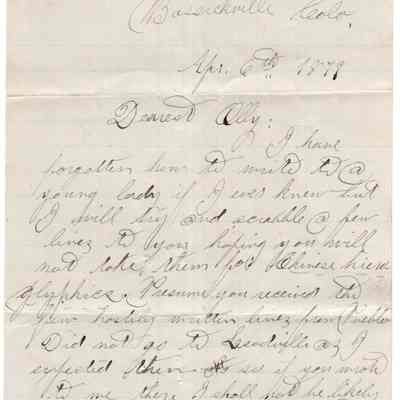 Bassickville Colo,
Apr. 6th 1879
Dearest Olly:
I have
forgotten how to write to a
young lady if I ever knew but
I will try and scrabble a few
linez to you hoping you will
not take them for Chinese hiero
glyphics. Presume you received the
few hastily written linez from Pueblo
Did not go to Leadville az I
expected then. so if you wrote
to me there I shall not be likely